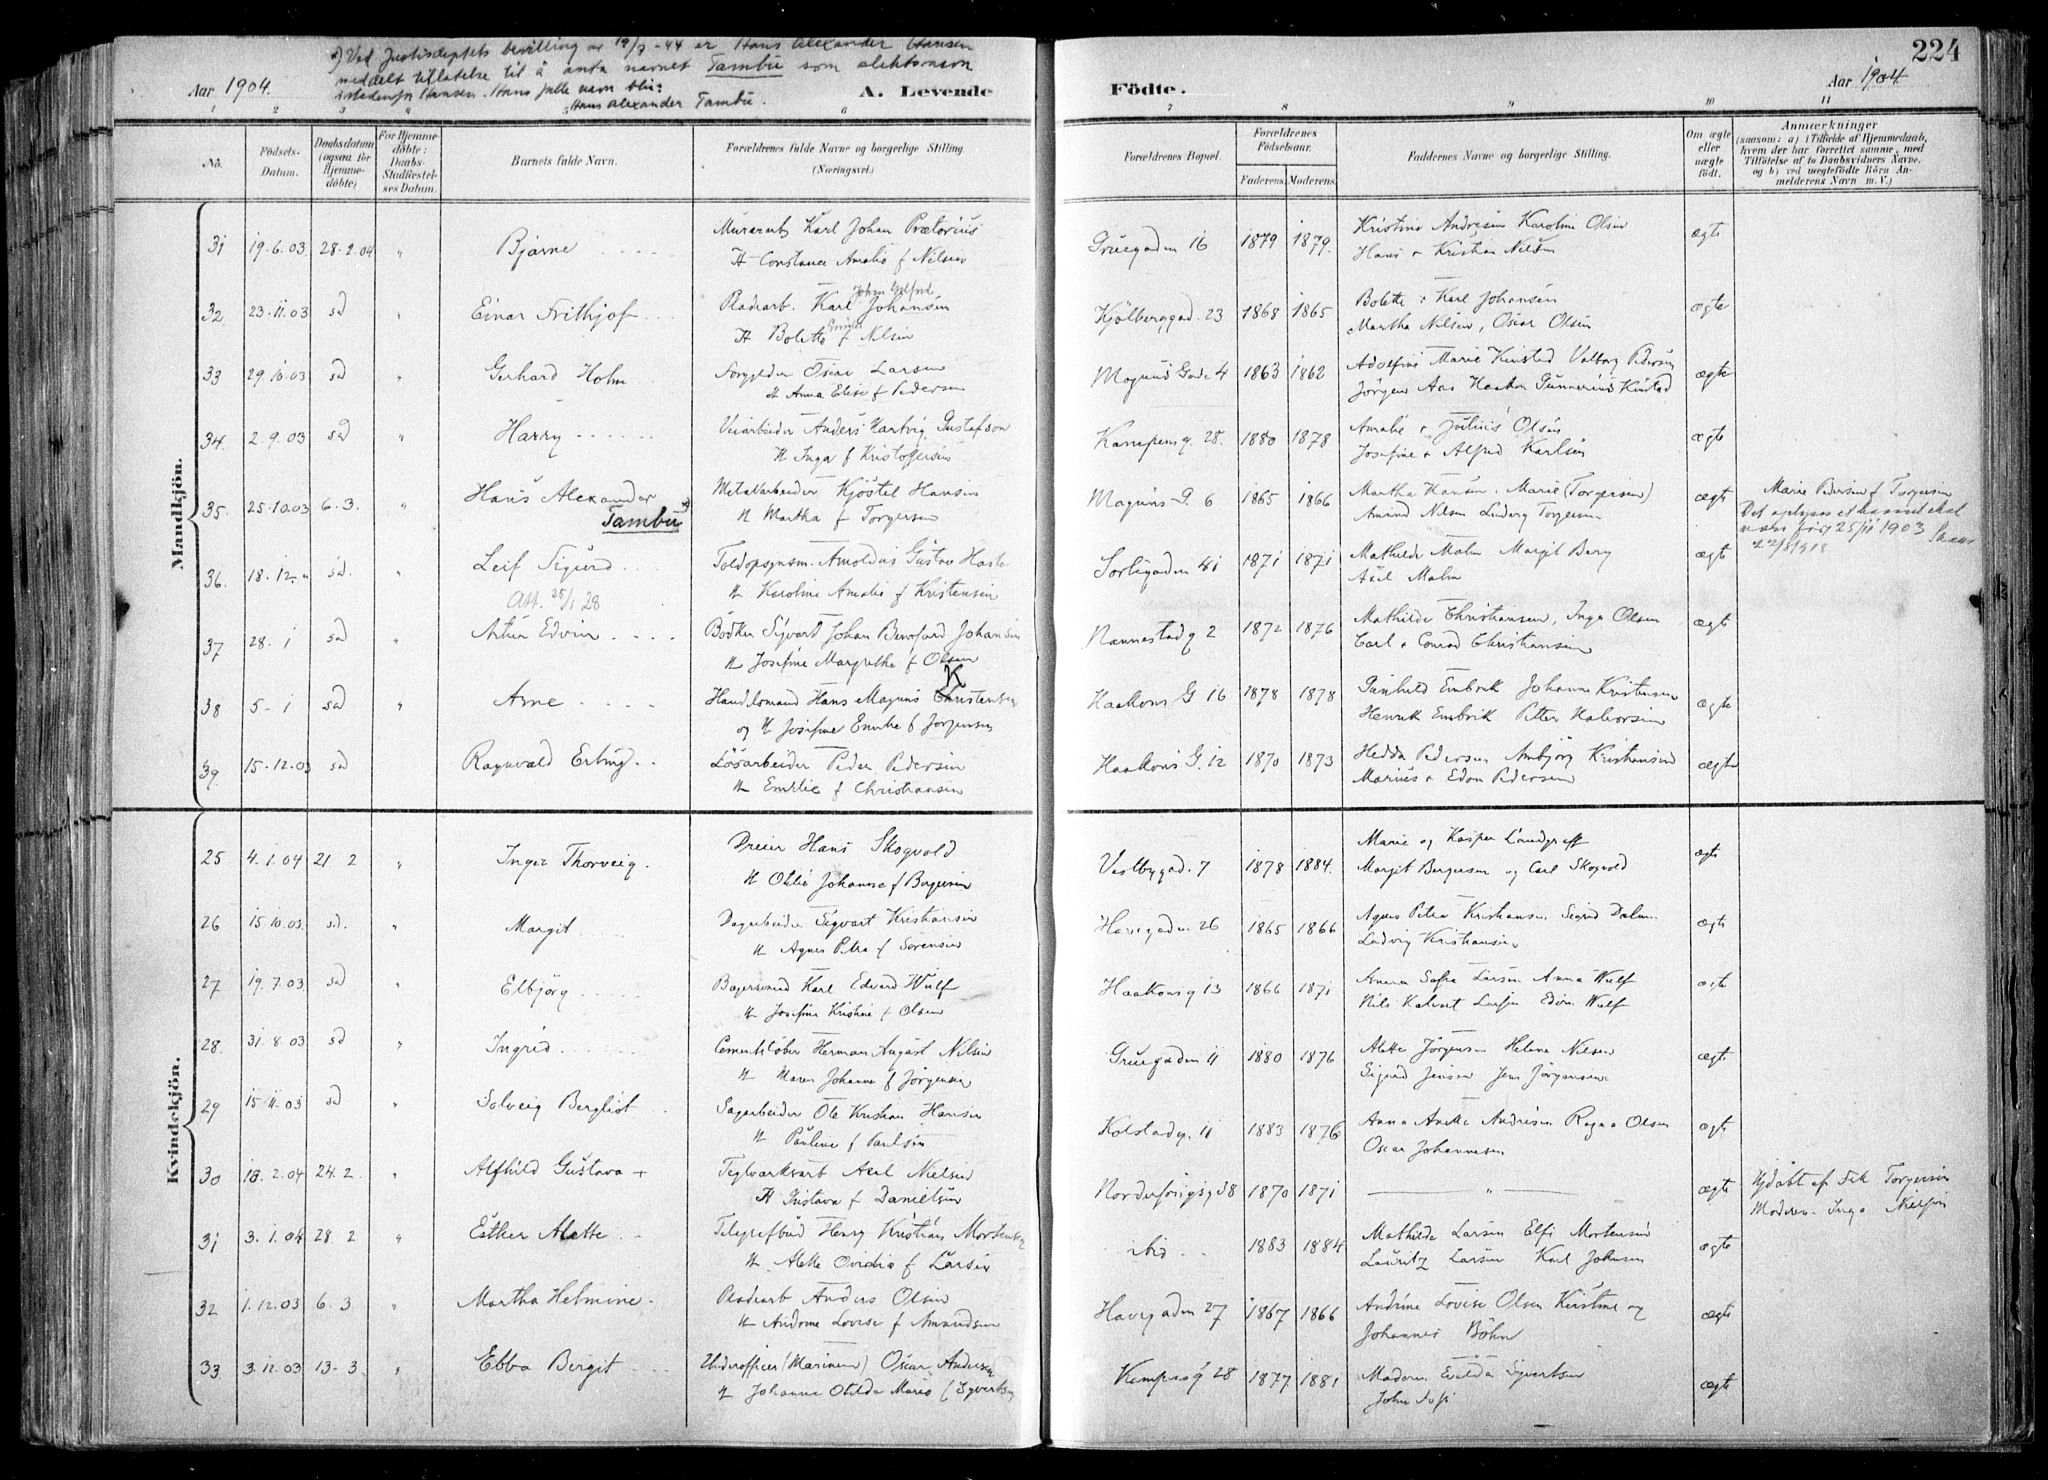 224
Ved Justisdeptets bevilling av 19/7-44 er Hans Alexander Hansen
meddelt tillatelse til å anta navnet Tambu som slektsnavn
istedenfor Hansen. Hans fulle navn blir:
Hans Alexander Tambu.
Aar 1904.
A. Levende
Födte.
Aar 1904
1 2 3 4 5 6 7 8 9 10 11
No.
Födsels-
Datum.
Daabsdatum
(ogsaa for
Hjemme-
döbte)
For Hjemme-
döbte:
Daabs-
Stadfæstel-
ses Datum.
Barnets fulde Navn.
Forældrenes fulde Navne og borgerlige Stilling
(Næringsvei.)
Forældrenes Bopæl.
Forældrenes
Födselsaar.
Faderens. Moderens.
Faddernes Navne og borgerlige Stilling.
Om ægte
eller
uægte
født.
Anmærkninger
(saasom: a) i Tilfælde af Hjemmedaab,
hvem der har forrettet samme, med
Tilföielse af to Daabsvidners Navne,
og b) ved uægtefödte Börn An-
melderens Navn m. V.)
Mandkjön.
31 19.6.03 28.2.04 " Bjarne Murerarb. Karl Johan Prætorius
H. Constance Amalie f Nilsen
Gruegaden 16 1879 1879. Kristine Andresen Karoline Olsen
Hans + Kristian Nilsen ægte
32 23.11.03 sd " Einar Frithjof Pladearb. Karl Johansen
H Bolette f Nilsen
Kjölberggad. 23 1868 1865 Bolette + Karl Johansen
Martha Nilsen, Oscar Olsen ægte
33 29.10.03 sd " Gerhard Holm Forgylder Oscar Larsen
H Anna Elise f Pedersen
Magnus Gade 4 1863 1862 Adolfine Marie Kinstad Valborg Pedersen
Jörgen Aas Haakon Gunnerius Kinstad ægte
34. 2.9.03 sd " Harry Veiarbeider Anders Hartvig Gustafson
H Inga f Kristoffersen
Kampensg. 28. 1880 1878 Amalie + Julius Olsen
Josefine + Alfred Karlsen ægte
35. 25.10.03 6.3. " Hans Alexander
Tambu Metalarbeider Kjöstel Hansen
H Martha f Torgersen
Magnus G. 6 1865 1866 Martha Hansen. Marie (Torgersen)
Amund Nilsen Ludvig Torgersen ægte
Marie Pedersen f Torgersen
25/11 1903
22/8 1918
36. 18.12." sd. " Leif Sigurd
Att. 25/1 28
Toldopsynsm. Arnoldus Gustav
H Karoline Amalie f Kristensen
Sorligaden 41 1871 1871 Mathilde Malm Margit Berg
Axel Malm ægte
37 28.1 sd " Artur Edvin Bödker Sigvart Johan Johansen
H Josefine Margrethe f Olsen
Nannestadg 2 1872 1876 Mathilde Christiansen, Inga Olsen
Carl + Conrad Christiansen ægte
38 5-1 sd " Arne Handelsmand Hans Magnus Christensen
K
og H Josefine Emilie f Jörgensen
Haakons G 16 1878 1878 Gunhild Embrik Johanne Kristensen
Henrik Embrik Petter Halvorsen ægte
39. 15.12.03 sd Ragnvald Erling Lösarbeider Peder Pedersen
H Emilie f Christiansen
Haakons G. 12 1870 1873 Hedda Pedersen Ambjörg Kristiansen
Marius + Edon Pedersen ægte
Kvindekjön.
25 4.1.04 21 2 " Inger Thorveig. Dreier Hans Skogvold
H Otilie Johanne f Bergersen
Vestbygad. 7 1878 1884. Marie og Kasper Lundgreff
Margit Bergersen og Carl Skogvold ægte
26 15.10.03 sd. " Margit Dagarbeider Sigvart Kristiansen
H Agnes Petra f Sörensen
Havegaden 26 1865 1866 Agnes Petra Kristiansen Sigrid Dalm
Ludvig Kristiansen ægte
27 19.7.03 sd " Elbjörg Bagersvend Karl Edvard Wulf
H Josefine Kristine f Olsen
Haakonsg 13 1866 1871 Anna Sofia Larsen Anna Wulf
Nils Edvin Wulf ægte
28. 31.8.03 sd " Ingrid Cementstöber Herman August Nilsen
H Maren Johanne f Jörgensen
Gruegaden 11 1880 1876 Alette Jörgensen Helene Nilsen
Sigurd Jensen Jens Jörgensen ægte
29 15.11.03 sd " Solveig Bergliot Sagarbeider Ole Kristian Hansen
H Pauline f Paulsen
Kolstadg. 11 1883 1876 Anna Anette Andresen Ragna Olsen
Oscar Johannesen ægte
30 18.2.04 24.2. " Alfhild Gustava + Teglværksarb Axel Nielsen
H Gustava f Danielsen
Norderhovsgd 8 1870 1871 " ægte Hjdöbt af Frk Torgersen
Moderen - Inga Nielsen
31 3.1.04 28.2 " Esther Alette Telegrafbud Henry Kristian Mortensen
H. Alette Ovidia f Larsen
ibid 1883 1884 Mathilde Larsen Elfi Mortensen
Lauritz Larsen Karl Johnsen ægte
32 1.12.03 6.3 " Martha Helmine. Pladearb Anders Olsen
H Andrine Lovise f Amundsen
Havegaden 27 1867 1866 Andrine Lovise Olsen Kirstine og
Johannes Böhn ægte
33 3.12.03 13-3. " Ebba Bergit Underofficer (Marinen) Oscar Andersen
H Johanne Otilde Marie f Syvertsen
Kampensg 28 1877 1881 Moderen Evelda Syvertsen
John ægte